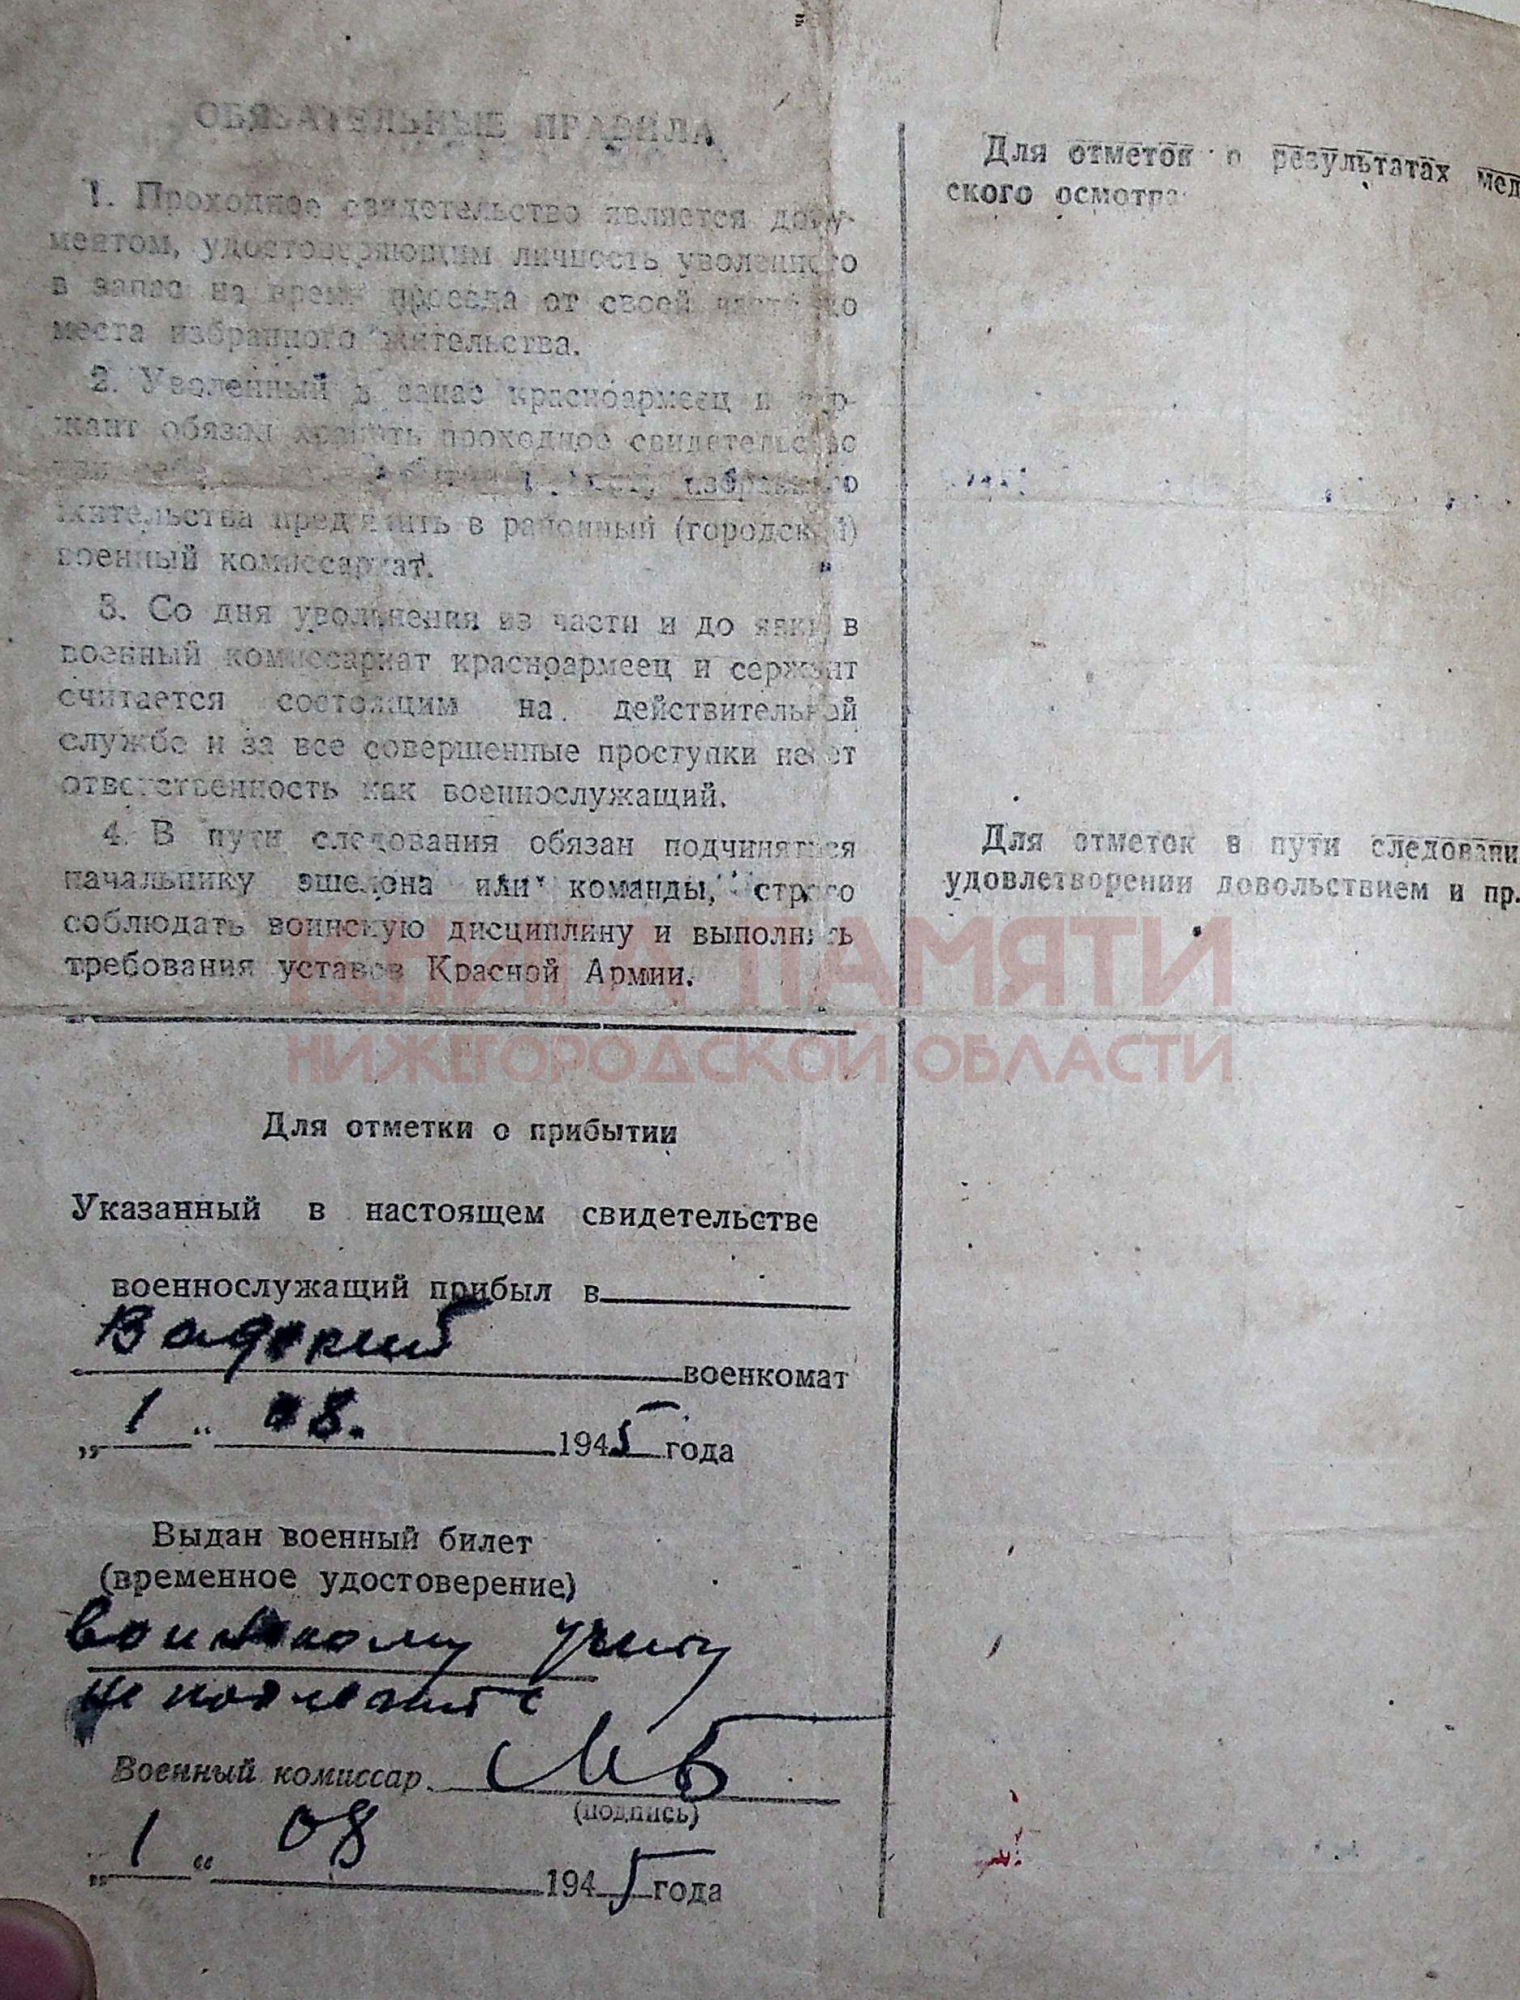 ОБЯЗАТЕЛЬНЫЕ ПРАВИЛА
1. Проходное свидетельство является доку-
ментом, удостоверяющим личность уволенного
в запас на время проезда от своей части до
места избранного жительства.
2. Уволенный в запас красноармеец и сер-
жант обязан хранить проходное свидетельство
при себе избранного
жительства предъявить в районный (городской)
военный комиссариат.
3. Со дня увольнения из части и до явки в
военный комиссариат красноармеец и сержант
считается состоящим на действительной
службе и за все совершенные проступки несет
ответственность как военнослужащий.
4. В пути следования обязан подчиняться
начальнику эшелона или команды, строго
соблюдать воинскую дисциплину и выполнять
требования уставов Красной Армии.
Для отметки о прибытии
Указанный в настоящем свидетельстве
военнослужащий прибыл в
Вадский
военкомат
„1“ 08. 1945 года
Выдан военный билет
(временное удостоверение)
воинскому учету
не подлежит
Военный комиссар
(подпись)
„1“ 08 1945 года
Для отметок о результатах мед
ского осмотра
Для отметок в пути следовани
удовлетворении довольствием и пр.
КНИГА ПАМЯТИ
НИЖЕГОРОДСКОЙ ОБЛАСТИ